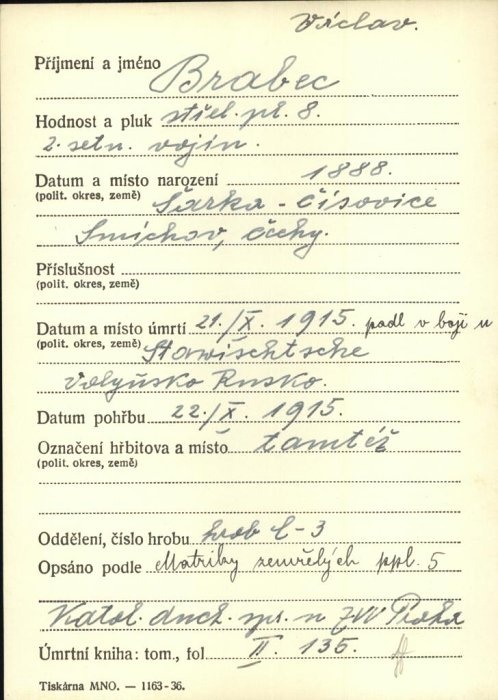 Václav.
Příjmení a jméno Brabec
Hodnost a pluk střel. pl. 8.
2. setn. vojín.
Datum a místo narození 1888.
(polit. okres, země) Šárka - Čísovice
Smíchov, Čechy.
Příslušnost
(polit. okres, země)
Datum a místo úmrtí 21./X. 1915. padl v boji u
(polit. okres, země) Stawischtsche
Volyňsko Rusko.
Datum pohřbu 22./X. 1915.
Označení hřbitova a místo tamtéž
(polit. okres, země)
Oddělení, číslo hrobu hrob č - 3
Opsáno podle Matriky zemřelých ppl. 5
Katol. duch. spr. u ZVV Praha
Úmrtní kniha: tom., fol. II. 135.
Tiskárna MNO. — 1163-36.